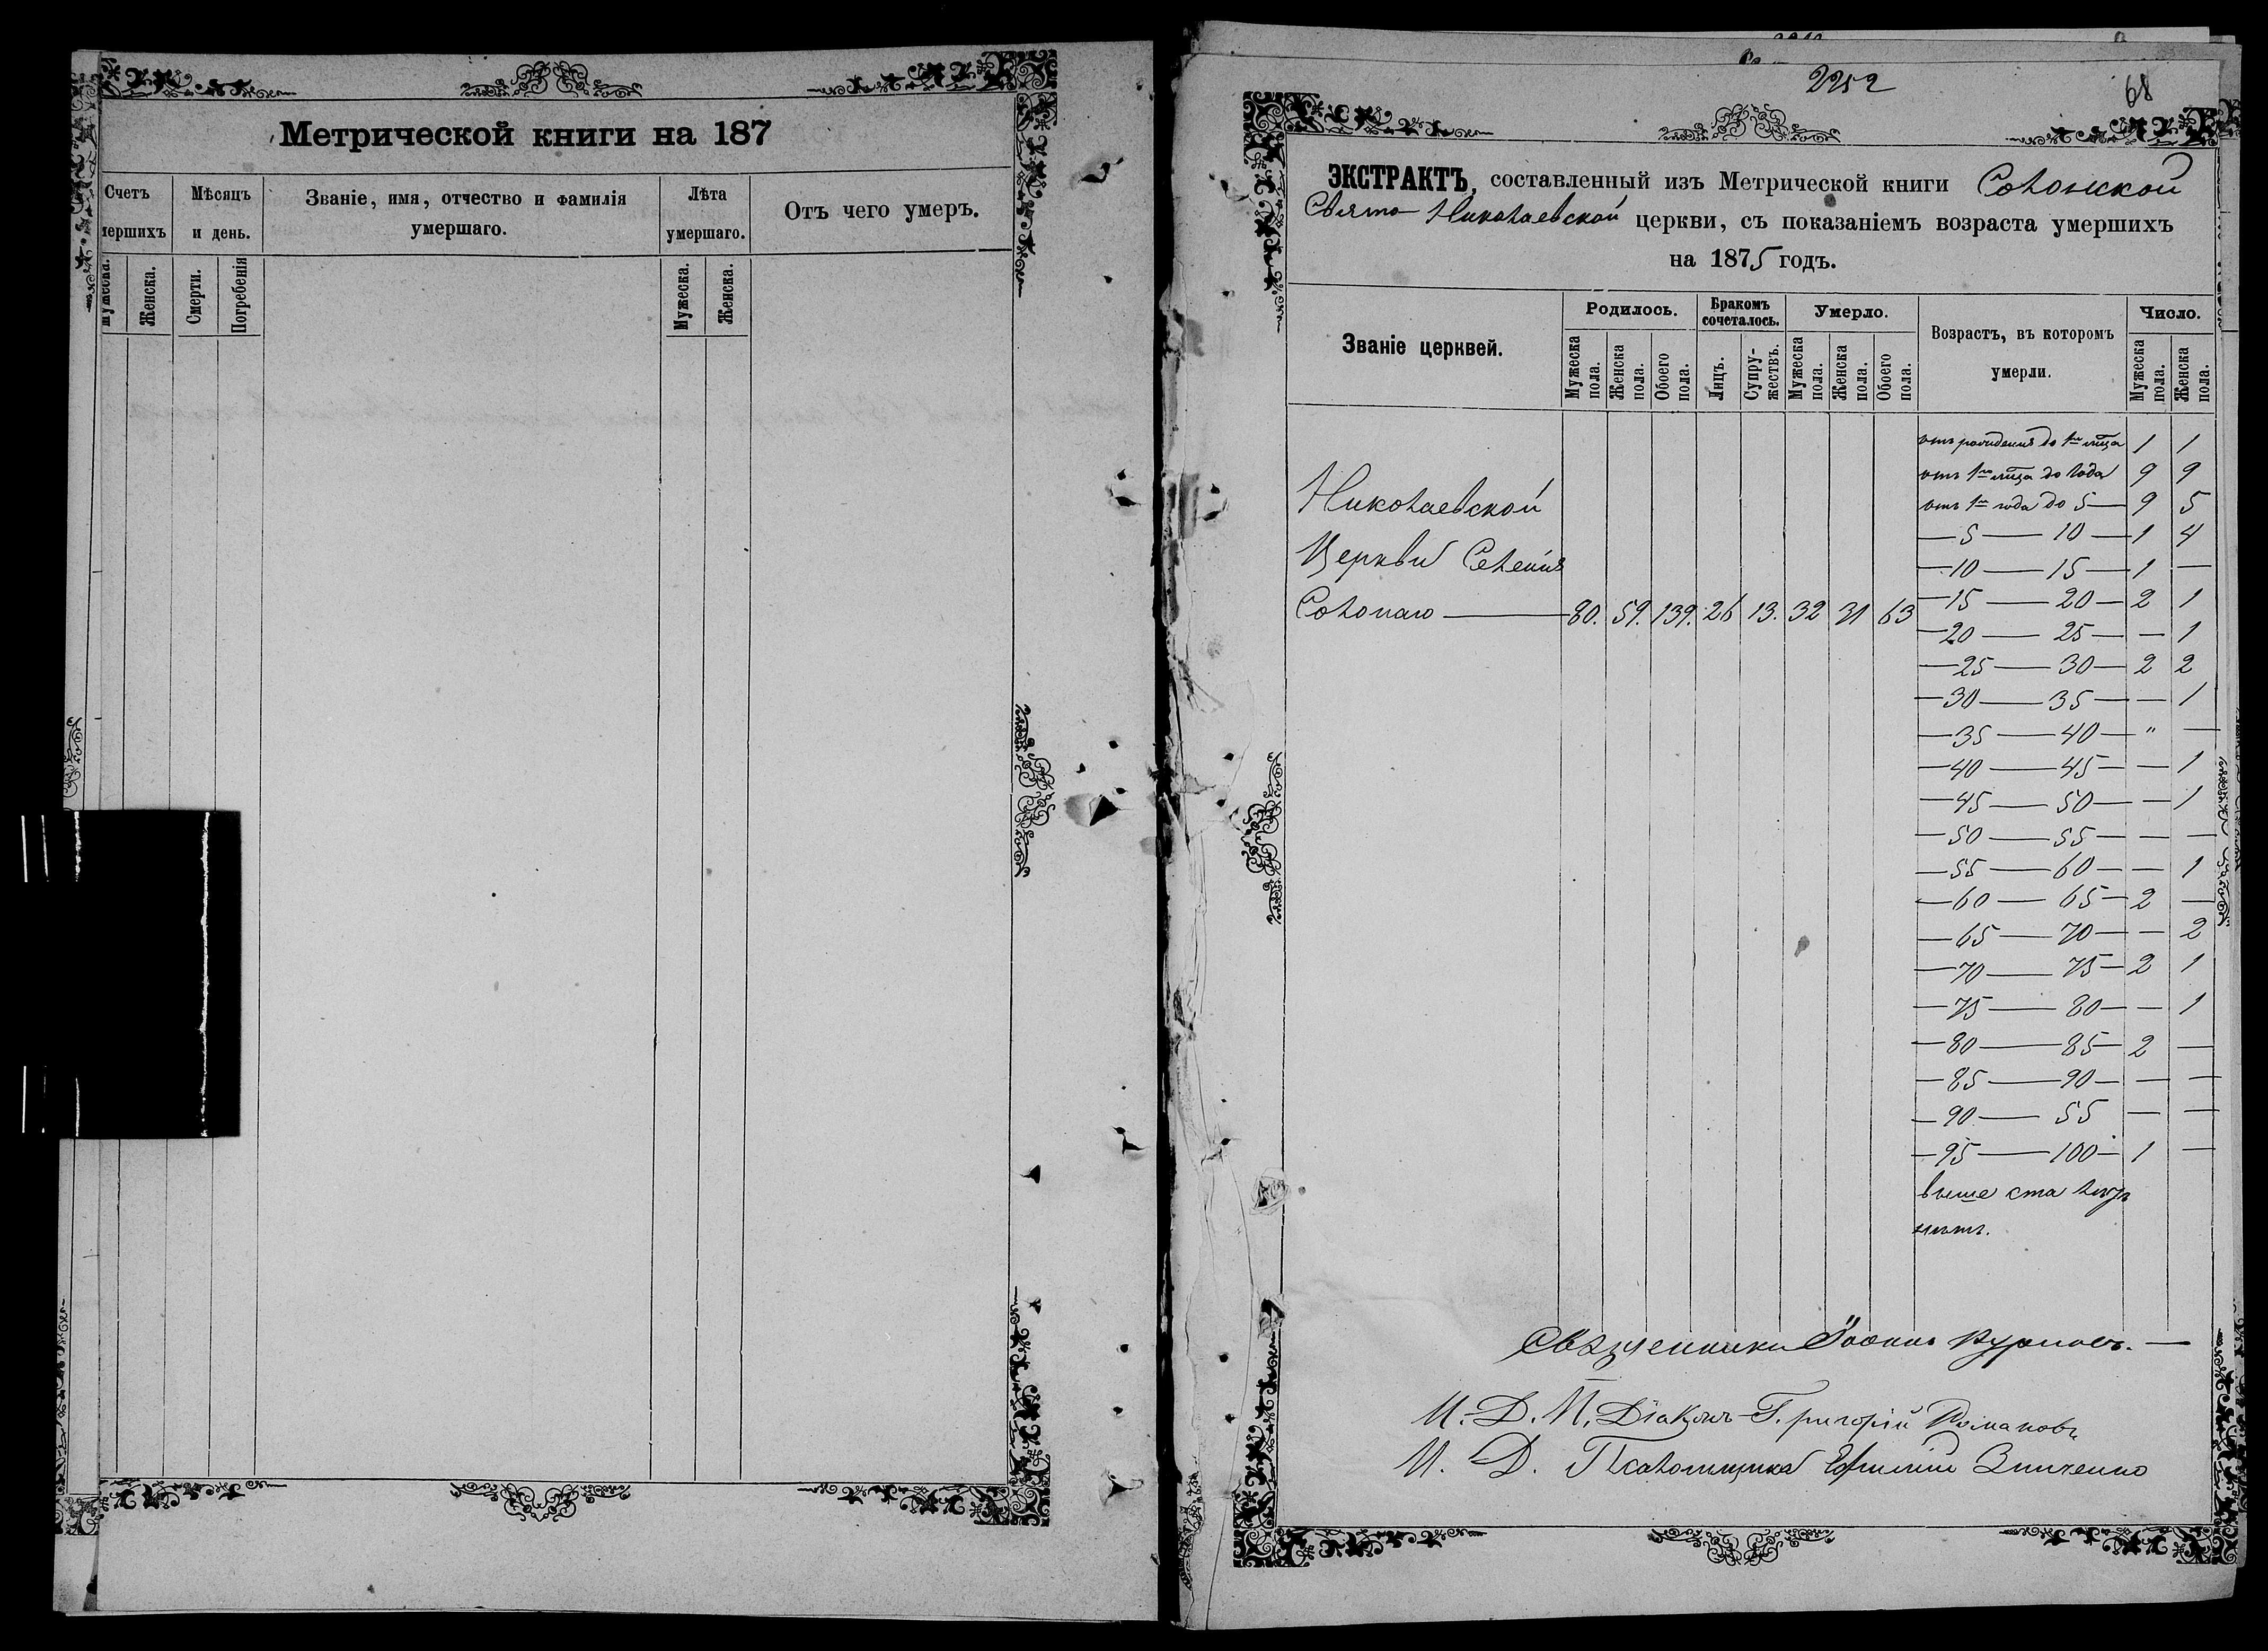 Метрической книги на 187
Счетъ
мершихъ
Мѣсяцъ
и день.
Званіе, имя, отчество и фамилія
умершаго.
Лѣта
умершаго.
Отъ чего умеръ.
Мужеска.
Женска.
Смерти.
Погребенія
Мужеска.
Женска.
2252
68
ЭКСТРАКТЪ, составленный изъ Метрической книги Солонской
Свято-Николаевской церкви, съ показаніемъ возраста умершихъ
на 1875 годъ.
Званіе церквей.
Родилось.
Бракомъ
сочеталось.
Умерло.
Возрастъ, въ которомъ
умерли.
Число.
Мужеска пола.
Женска пола.
Обоего пола.
Лицъ.
Супружествъ.
Мужеска пола.
Женска пола.
Обоего пола.
Мужеска пола.
Женска пола.
Николаевской
Церкви Селенія
80. 59. 139. 26 13. 32 31 63
отъ рожденія до 1го мѣсца 1 1
отъ 1го мѣсца до года 9 9
отъ 1го года до 5 — 9 5
— 5 — 10 — 1 4
— 10 — 15 — 1 —
— 15 — 20 — 2 1
— 20 — 25 — — 1
— 25 — 30 — 2 2
— 30 — 35 — — 1
— 35 — 40 — " —
— 40 — 45 — — 1
— 45 — 50 — — 1
— 50 — 55 — — —
— 55 — 60 — — 1
— 60 — 65 — 2 —
— 65 — 70 — — 2
— 70 — 75 — 2 1
— 75 — 80 — — 1
— 80 — 85 — 2 —
— 85 — 90 — — —
— 90 — 55 — —
— 95 — 100 — 1 —
выше ста лѣтъ
нѣтъ.
Священники Іоаннъ
И. Д. П. Діаконъ Григорій Романовъ
И. Д. Псаломщика Ефимій Зинченко